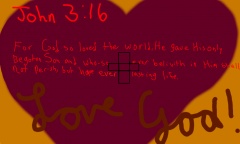 John 3:16
For God so loved the world. He gave His only
Begotten Son and who believeth in Him shall
not Perish but have ever life.
Love God!